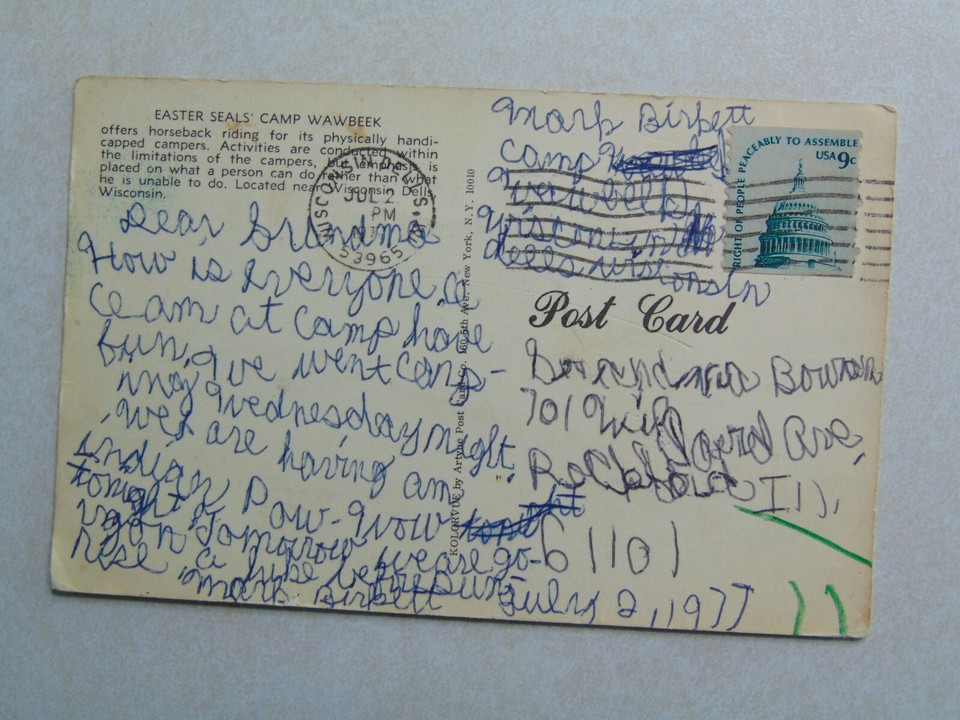 EASTER SEALS' CAMP WAWBEEK
offers horseback riding for its physically handi-
capped campers. Activities are conducted within
the limitations of the campers, but emphasis is
placed on what a person can do rather than what
he is unable to do. Located near Wisconsin Dells,
Wisconsin.
WISCONSIN DELLS
JUL 2
PM
53965
Dear Grandma
How is everyone,
am at camp have
fun, we went camp-
ing Wednesday night.
We are having an
indian Pow-Wow
tonight
Tomorrow we are go-
ing on a hike before
rise Sun
Mark Birkett
KOLORVUE by Artvue Post Card Co. 160 5th Ave. New York, N. Y. 10010
Mark Birkett
Camp
Wawbeek
Wisconsin
dells wisconsin
RIGHT OF PEOPLE PEACEABLY TO ASSEMBLE
USA 9c
Post Card
Grandma Bowman
701 Ave,
Rockford Ill,
61101
July 2, 1977